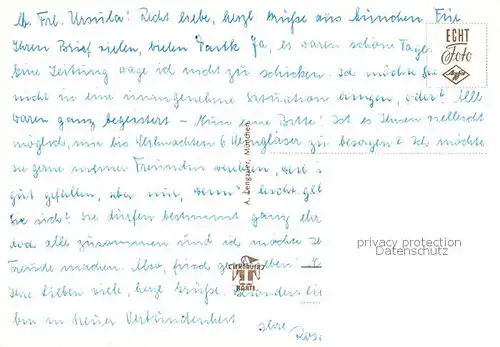 Lb. Frl. Ursula! Recht liebe, herzl. Grüße aus München. Für
Ihren Brief vielen, vielen Dank. Ja, es waren schöne Tage.
Eine Zeitung wage ich nicht zu schicken. Ich möchte Sie
nicht in eine unangenehme Situation bringen, oder? Alle
waren ganz begeistert – Nun eine Bitte! Ist es Ihnen vielleicht
möglich, mir bis Weihnachten 6 Weingläser zu besorgen? Ich möchte
sie gerne meiner Freundin
gut gefallen, aber nur, wenn's leicht geht
Sie dürfen bestimmt ganz ehr
doch alle zusammen und ich möchte Ih
Freude machen. Also,
Ihre lieben viele, herzl. Grüße. Besonders
bin in treuer Verbundenheit
Ihre
Rosi
ECHT
Foto
Agfa
A. Lengauer, München
privacy protection
Datenschutz